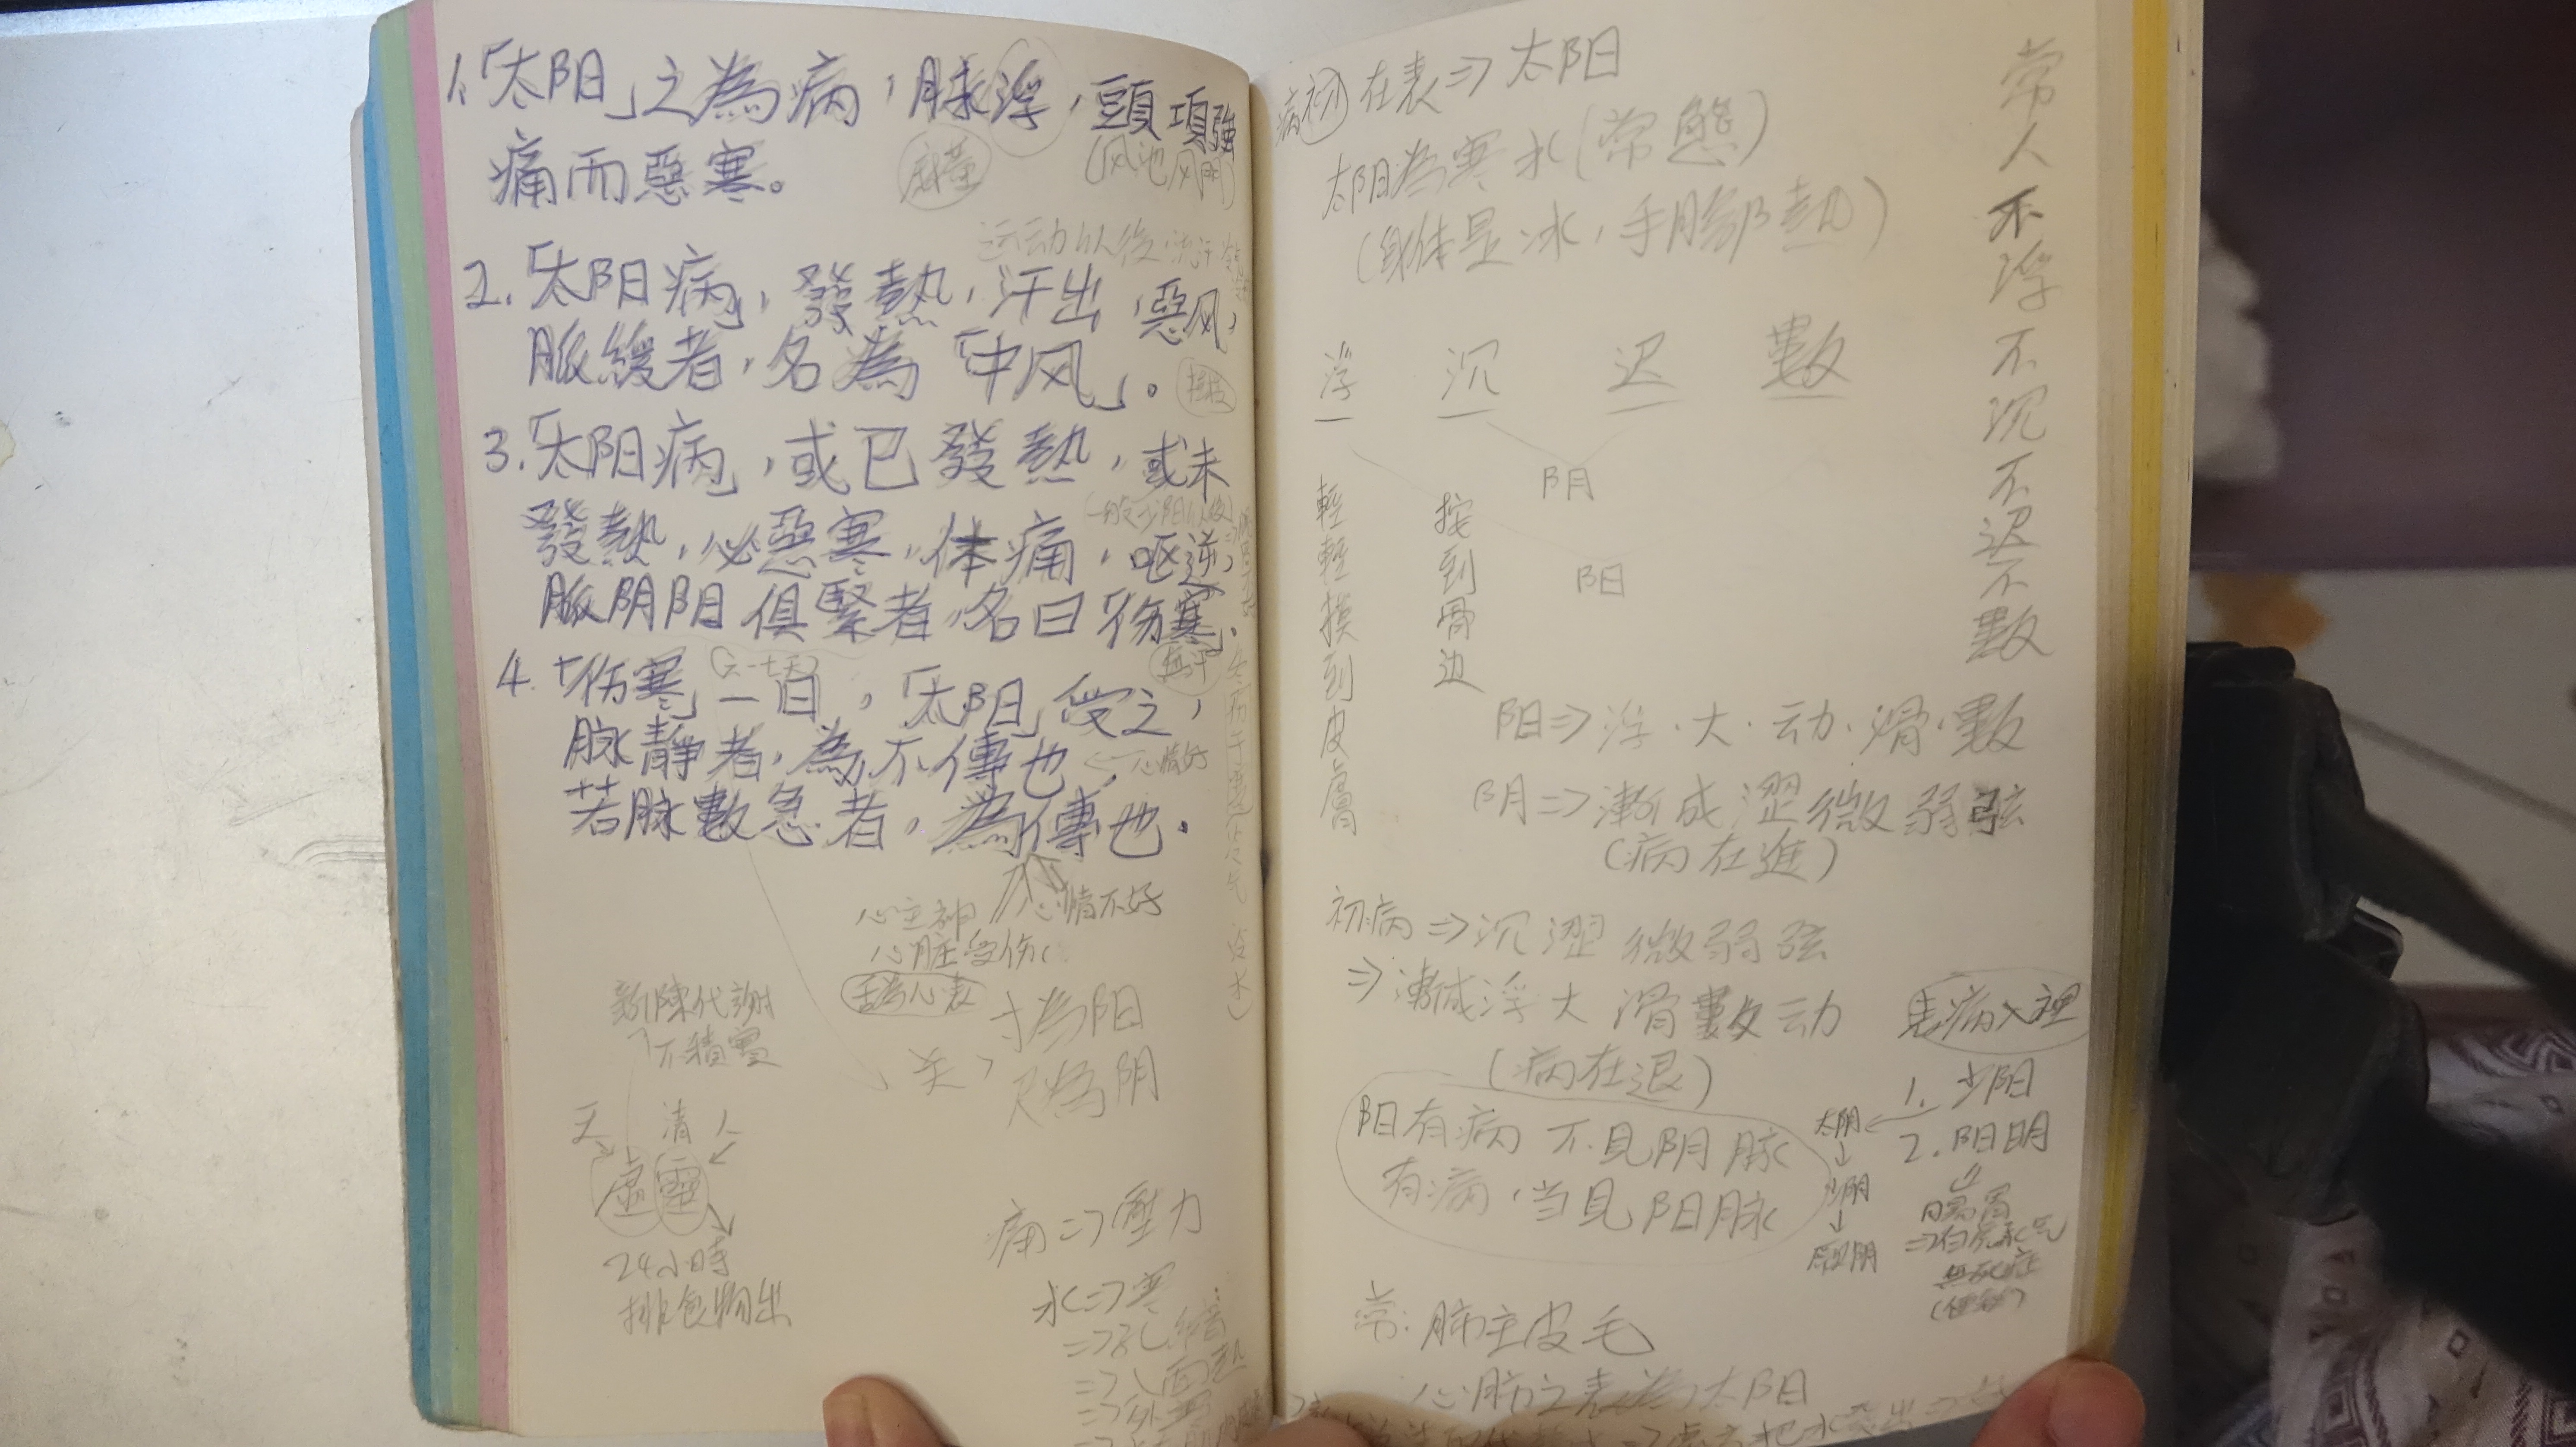 1.「太阳」之為病，脉浮，頭項強
(风池风府)
痛而惡寒。
运动以後
2.「太阳病」，發熱，汗出，惡风，
脈緩者，名為「中风」。
3.「太阳病」，或已發熱，或未
發熱，必惡寒，体痛，呕逆，
脈阴阳俱緊者，名曰「伤寒」。
無汗
4.「伤寒」一日，「太阳」受之，
脉靜者，為不傳也，
←心情好
若脉數急者，為傳也。
心主神
心情不好
心脏受伤
舌為心表
新陳代謝
不積
寸為阳
关
尺為阴
天
清
人
虛靈
24小時
排食物出
痛⇒壓力
水⇒寒
病初在表⇒太阳
太阳為寒水(常態)
(身体是冰，手脚熱)
浮 沉 迟 數
阴
阳
輕輕摸到皮膚
按到骨边
常人不浮不沉不迟不數
阳⇒浮·大·动·滑·數
阴⇒漸成澀微弱弦
(病在進)
初病⇒沉澀微弱弦
⇒漸成浮大滑數动
(病在退)
表病入裡
1. 少阳
2. 阳明
太阴
↓
少阴
↓
厥阴
阳有病不見阴脉
有病，当見阳脉
常：肺主皮毛
心肺之表為太阳